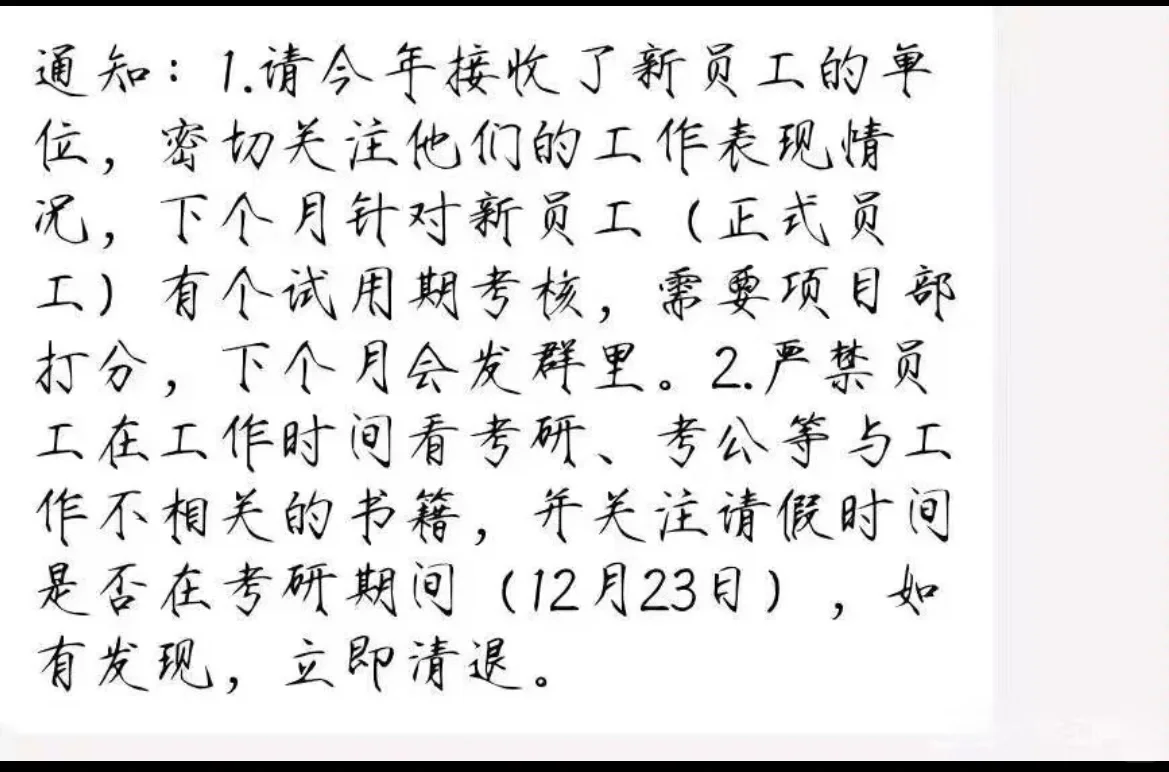 通知：1.请今年接收了新员工的单
位，密切关注他们的工作表现情
况，下个月针对新员工（正式员
工）有个试用期考核，需要项目部
打分，下个月会发群里。2.严禁员
工在工作时间看考研、考公等与工
作不相关的书籍，并关注请假时间
是否在考研期间（12月23日），如
有发现，立即清退。